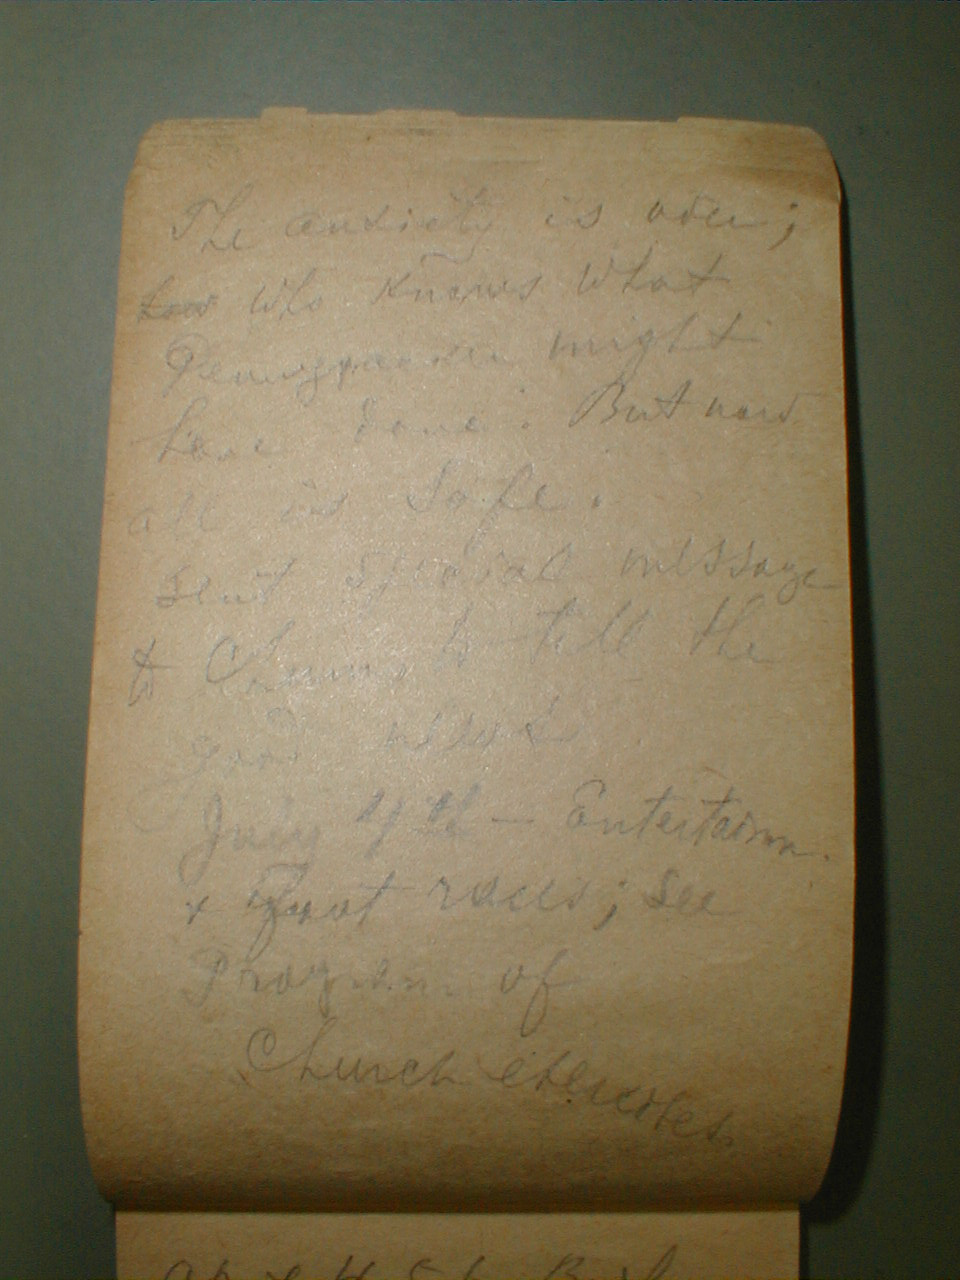 The anxiety is over;
for who knows what
Geaugparrer might
have done. But now
all is safe.
Sent special message
to Chums to tell the
good news.
July 4th — Entertainm.
+ Foot races; see
Program of
Church exercises.